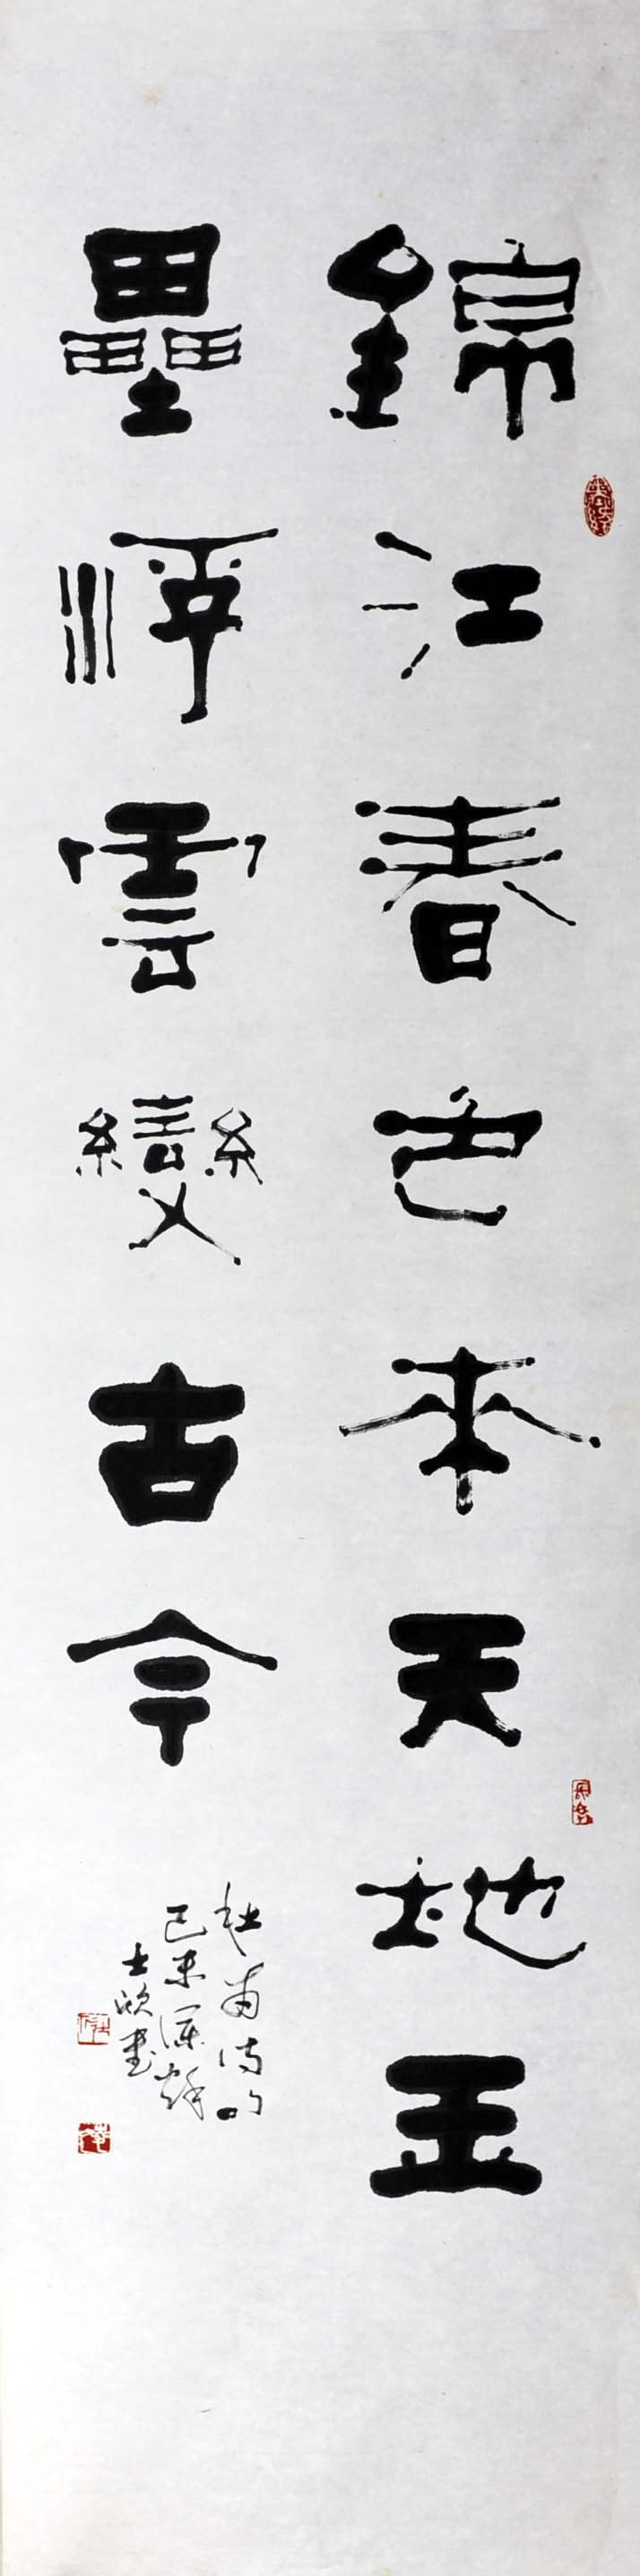 錦江春色來天地玉
壘浮雲變古今
杜甫诗句
己未深秋
士欣書